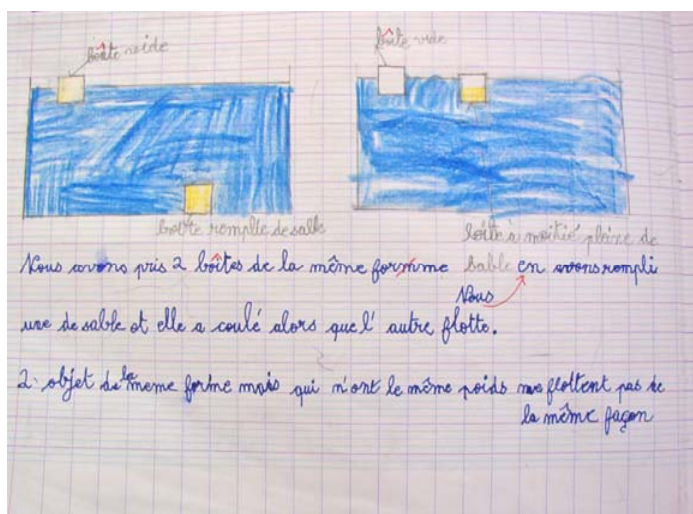 boîte vide
boîte vide
boîte remplie de sable
boîte à moitié pleine de
sable
Nous avons pris 2 boîtes de la même formme en avons rempli
Nous
une de sable et elle a coulé alors que l'autre flotte.
2 objet de la meme forme mais qui n'ont le même poids ne flottent pas de
la même façon